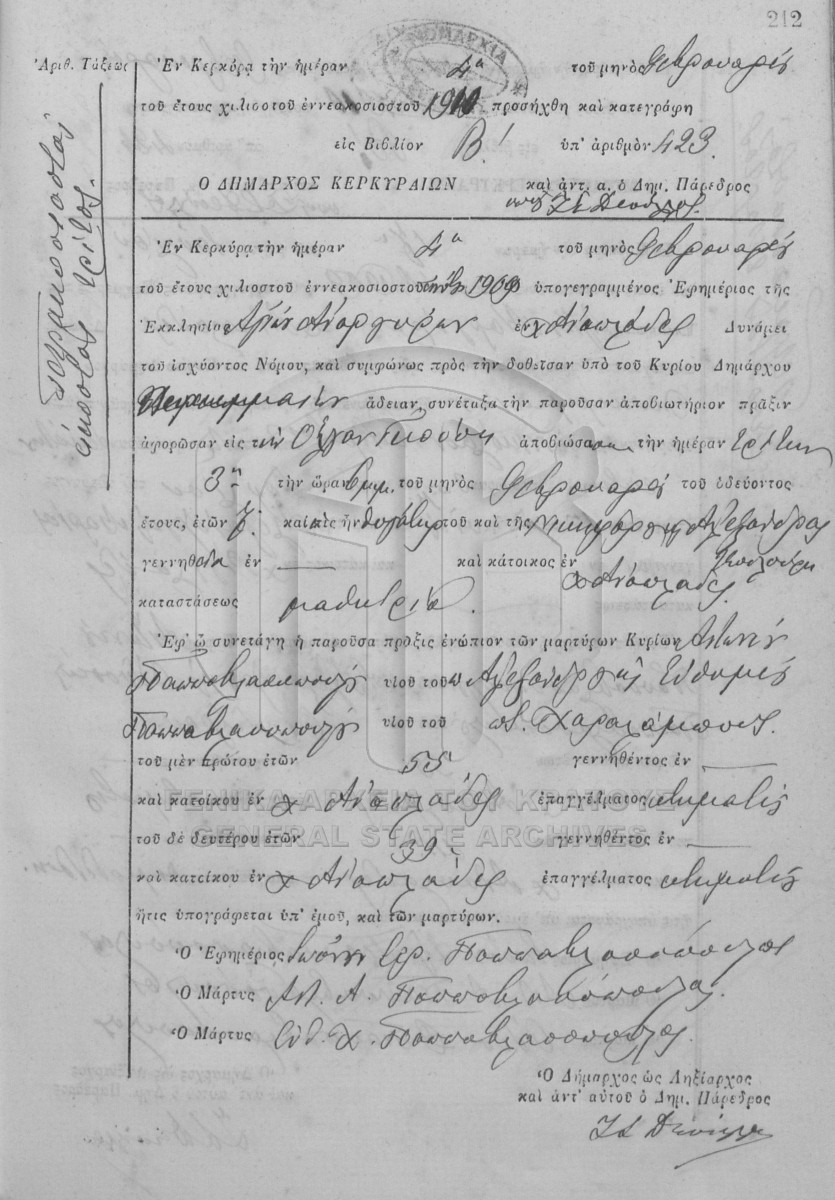 212
Ἀριθ. Τάξεως
τετρακοσιοστός
εἰκοστός τρίτος.
Ἐν Κερκύρᾳ τὴν ἡμέραν 4η τοῦ μηνὸς Φεβρουαρίου
τοῦ ἔτους χιλιοστοῦ ἐννεακοσιοστοῦ 1910 προσήχθη καὶ κατεγράφη
εἰς Βιβλίον Β! ὑπ' ἀριθμὸν 423.
Ο ΔΗΜΑΡΧΟΣ ΚΕΡΚΥΡΑΙΩΝ καὶ ἀντ. α. ὁ Δημ. Πάρεδρος
Ἐν Κερκύρᾳ τὴν ἡμέραν 4η τοῦ μηνὸς Φεβρουαρίου
τοῦ ἔτους χιλιοστοῦ ἐννεακοσιοστοῦ ὑπογεγραμμένος Ἐφημέριος τῆς
Ἐκκλησίας Ἁγίων Αναργύρων ἐν Δυνάμει
τοῦ ἰσχύοντος Νόμου, καὶ συμφώνως πρὸς τὴν δοθεῖσαν ὑπὸ τοῦ Κυρίου Δημάρχου
ἄδειαν, συνέταξα τὴν παροῦσαν ἀποβιωτήριον πρᾶξιν
ἀφορῶσαν εἰς τὴν ἀποβιώσασαν τὴν ἡμέραν Τρίτην
3ην τὴν ὥραν τοῦ μηνὸς Φεβρουαρίου τοῦ ὁδεύοντος
ἔτους, ἐτῶν 7. καὶ ἥτις ἦν θυγάτηρ τοῦ καὶ τῆς Αλεξάνδρας
γεννηθεῖσα ἐν — καὶ κάτοικος ἐν
καταστάσεως μαθήτρια.
Ἐφ' ᾧ συνετάγη ἡ παροῦσα πρᾶξις ἐνώπιον τῶν μαρτύρων Κυρίων Αντωνίου
Παππαβλασοπούλου υἱοῦ τοῦ Αλεξάνδρου τῆς Ευθυμίου
Παππαβλασοπούλου υἱοῦ τοῦ Χαραλάμπους.
τοῦ μὲν πρώτου ἐτῶν 55 γεννηθέντος ἐν —
καὶ κατοίκου ἐν ἐπαγγέλματος κτηματίας
ΓΕΝΙΚΑ ΑΡΧΕΙΑ ΤΟΥ ΚΡΑΤΟΥΣ
GENERAL STATE ARCHIVES
τοῦ δὲ δευτέρου ἐτῶν 39 γεννηθέντος ἐν —
καὶ κατοίκου ἐν ἐπαγγέλματος κτηματίας
ἥτις ὑπογράφεται ὑπ' ἐμοῦ, καὶ τῶν μαρτύρων.
Ὁ Ἐφημέριος Ἰωάννης Παππαβλασόπουλος
Ὁ Μάρτυς Αντ. Α. Παππαβλασόπουλος.
Ὁ Μάρτυς Εὐθ. Χ. Παππαβλασόπουλος.
Ὁ Δήμαρχος ὡς Ληξίαρχος
καὶ ἀντ' αὐτοῦ ὁ Δημ. Πάρεδρος